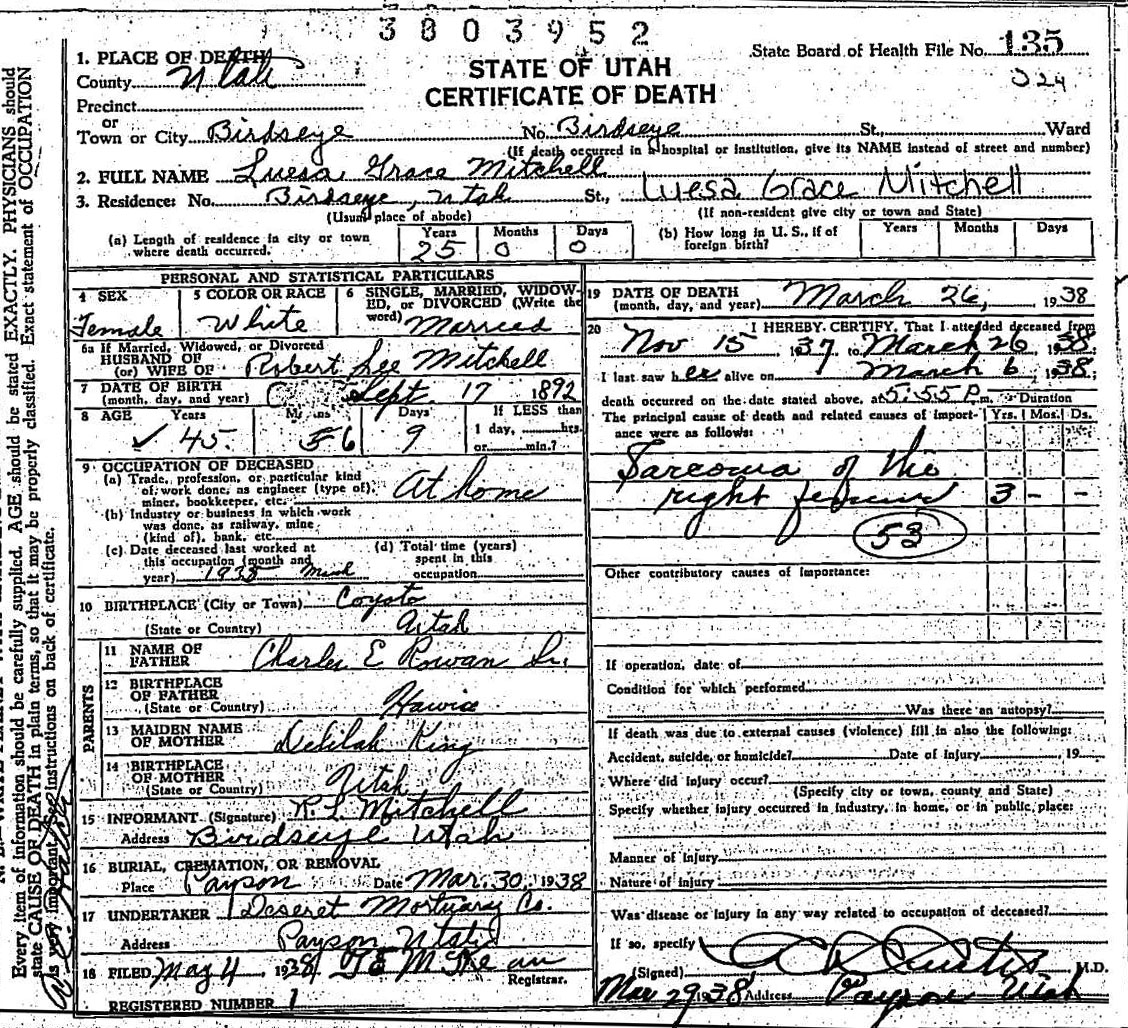 3803952
State Board of Health File No. 135
324
STATE OF UTAH
CERTIFICATE OF DEATH
1. PLACE OF DEATH
County Utah
Precinct
or
Town or City Birdseye No. Birdseye St., Ward
(If death occurred in a hospital or institution, give its NAME instead of street and number)
2. FULL NAME Luesa Grace Mitchell
3. Residence: No. Birdseye, Utah St., Luesa Grace Mitchell
(Usual place of abode) (If non-resident give city or town and State)
(a) Length of residence in city or town where death occurred. Years 25 Months 0 Days 0
(b) How long in U. S., if of foreign birth? Years Months Days
PERSONAL AND STATISTICAL PARTICULARS
4 SEX Female
5 COLOR OR RACE White
6 SINGLE, MARRIED, WIDOWED, or DIVORCED (Write the word) Married
6a If Married, Widowed, or Divorced
HUSBAND OF
(or) WIFE OF Robert Lee Mitchell
7 DATE OF BIRTH
(month, day, and year) Sept. 17 1892
8 AGE Years Days If LESS than
✓ 45. 6 9 1 day, hrs.
or min.?
9 OCCUPATION OF DECEASED
(a) Trade, profession, or particular kind
of work done, as engineer (type of),
miner, bookkeeper, etc. At home
(b) Industry or business in which work
was done, as railway, mine
(kind of), bank, etc.
(c) Date deceased last worked at
this occupation (month and
year) 1938
(d) Total time (years)
spent in this
occupation
10 BIRTHPLACE (City or Town) Coyoto
(State or Country) Utah
PARENTS
11 NAME OF
FATHER Charles E Rowan Sr.
12 BIRTHPLACE
OF FATHER
(State or Country)
13 MAIDEN NAME
OF MOTHER Delilah King
14 BIRTHPLACE
OF MOTHER
(State or Country) Utah
15 INFORMANT (Signature) R. L. Mitchell
Address Birdseye Utah
16 BURIAL, CREMATION, OR REMOVAL
Place Payson Date Mar. 30 1938
17 UNDERTAKER Deseret Mortuary Co.
Address Payson Utah
18 FILED May 4 1938
Registrar.
REGISTERED NUMBER 1
19 DATE OF DEATH
(month, day, and year) March 26, 1938
20 I HEREBY CERTIFY, That I attended deceased from
Nov 15 1937 to March 26 1938
I last saw her alive on March 6 1938;
death occurred on the date stated above, at 5:55 P.m. Duration
The principal cause of death and related causes of importance were as follows: Yrs. Mos. Ds.
Sarcoma of the
right femur 3 - -
53
Other contributory causes of importance:
If operation, date of
Condition for which performed
Was there an autopsy?
If death was due to external causes (violence) fill in also the following:
Accident, suicide, or homicide? Date of injury , 19
Where did injury occur?
(Specify city or town, county and State)
Specify whether injury occurred in industry, in home, or in public place:
Manner of injury
Nature of injury
Was disease or injury in any way related to occupation of deceased?
If so, specify
(Signed) Curtis M.D.
Mar 29 1938 Address Payson Utah
Every item of information should be carefully supplied. AGE should be stated EXACTLY. PHYSICIANS should
state CAUSE OF DEATH in plain terms, so that it may be properly classified. Exact statement of OCCUPATION
important. See instructions on back of certificate.